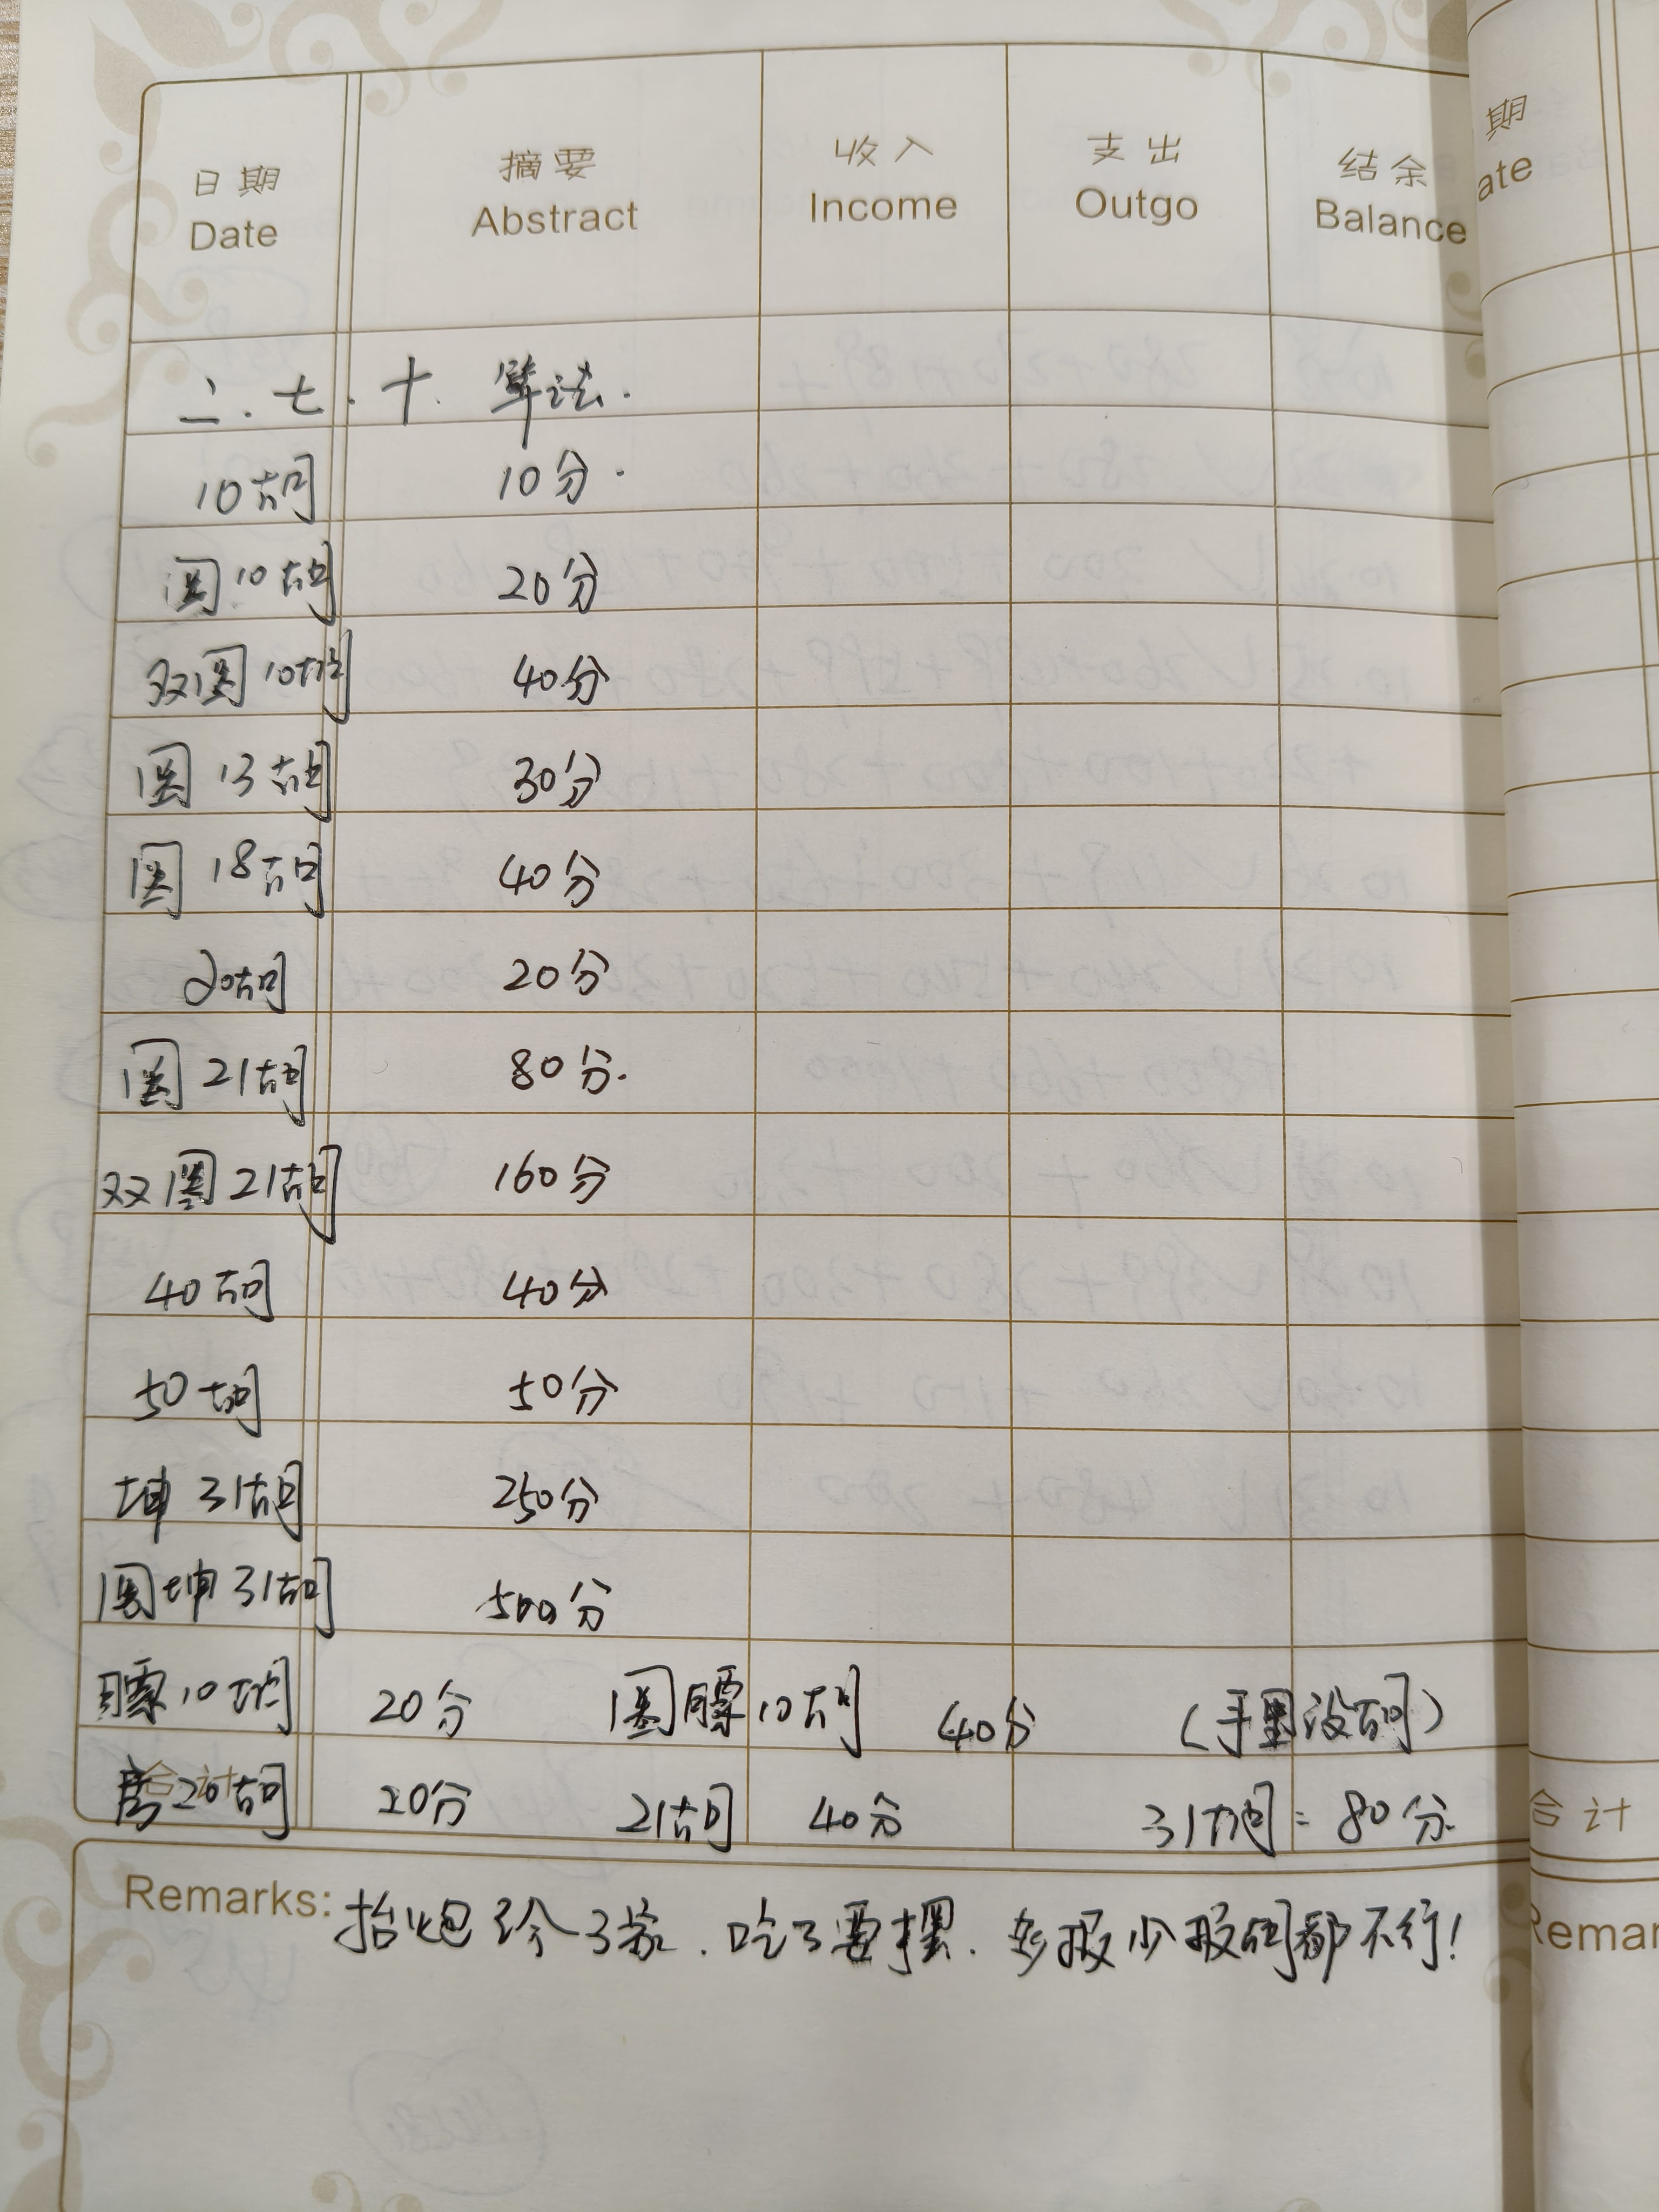 日期 摘要 收入 支出 结余
Date Abstract Income Outgo Balance
期
ate
二.七.十. 算法.
10胡 10分.
圈10胡 20分
双圈10胡 40分
圈13胡 30分
圈18胡 40分
20胡 20分
圈21胡 80分.
双圈21胡 160分
40胡 40分
50胡 50分
坤31胡 250分
圈坤31胡 500分
膘10胡 20分 圈膘10胡 40分 (手里没胡)
合计 20胡 20分 21胡 40分 31胡=80分.
合计
Remarks: 抬炮 3家.吃了要摆.多报少报胡都不行!
Remar